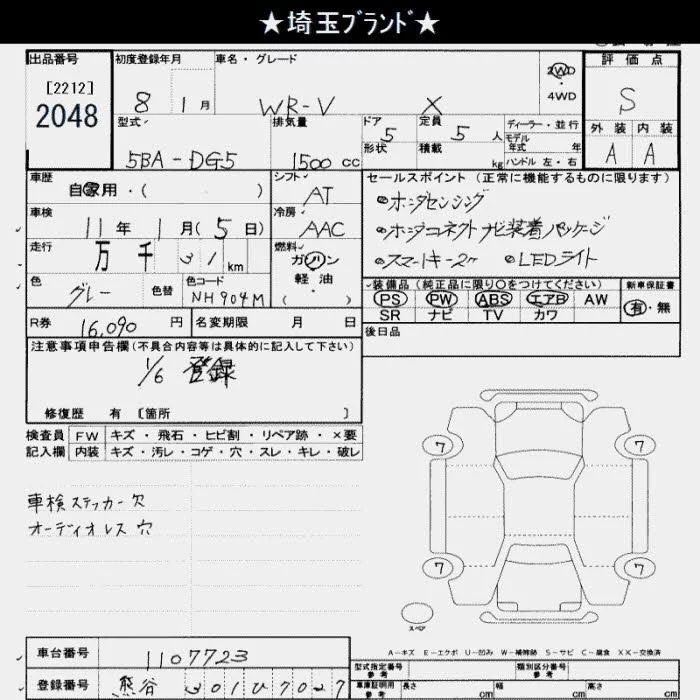 ★埼玉ﾌﾞﾗﾝﾄﾞ★
出品番号 初度登録年月 車名・グレード 評価点
[2212] 2048
8 1月 WR-V X 2WD 4WD S
型式 排気量 ドア 5 定員 5人 ディーラー・並行 外装 内装
モデル年式 年
5BA-DG5 1500cc 形状 積載 kg ハンドル 左・右 A A
車歴 自家用・( ) シフト AT セールスポイント(正常に機能するものに限ります)
ホンダセンシング
車検 11年 1月(5日) 冷房 AAC ホンダコネクトナビ装着パッケージ
走行 万千31km 燃料 ガソリン 軽油 ・( ) スマートキー2ヶ LEDライト
色 グレー 色替 色コード NH904M 装備品(純正品に限り〇をつけてください) 新車保証書
PS PW ABS エアB AW 有・無
R券 16,090円 名変期限 月 日 SR ナビ TV カワ
後日品
注意事項申告欄(不具合内容等は具体的に記入して下さい)
1/6 登録
修復歴 有 [箇所 ]
検査員 FW キズ・飛石・ヒビ割・リペア跡・×要
記入欄 内装 キズ・汚レ・コゲ・穴・スレ・キレ・破レ
7 7
車検ステッカー欠
オーディオレス穴
7 7
スペア
A-キズ E-エクボ U-凹み W-補修跡 S-サビ C-腐食 XX-交換済
車台番号 1107723 型式指定番号 参考 類別区分番号 参考
登録番号 熊谷 301ひ7027 車庫証明用 参考 長さ cm 幅 cm 高さ cm